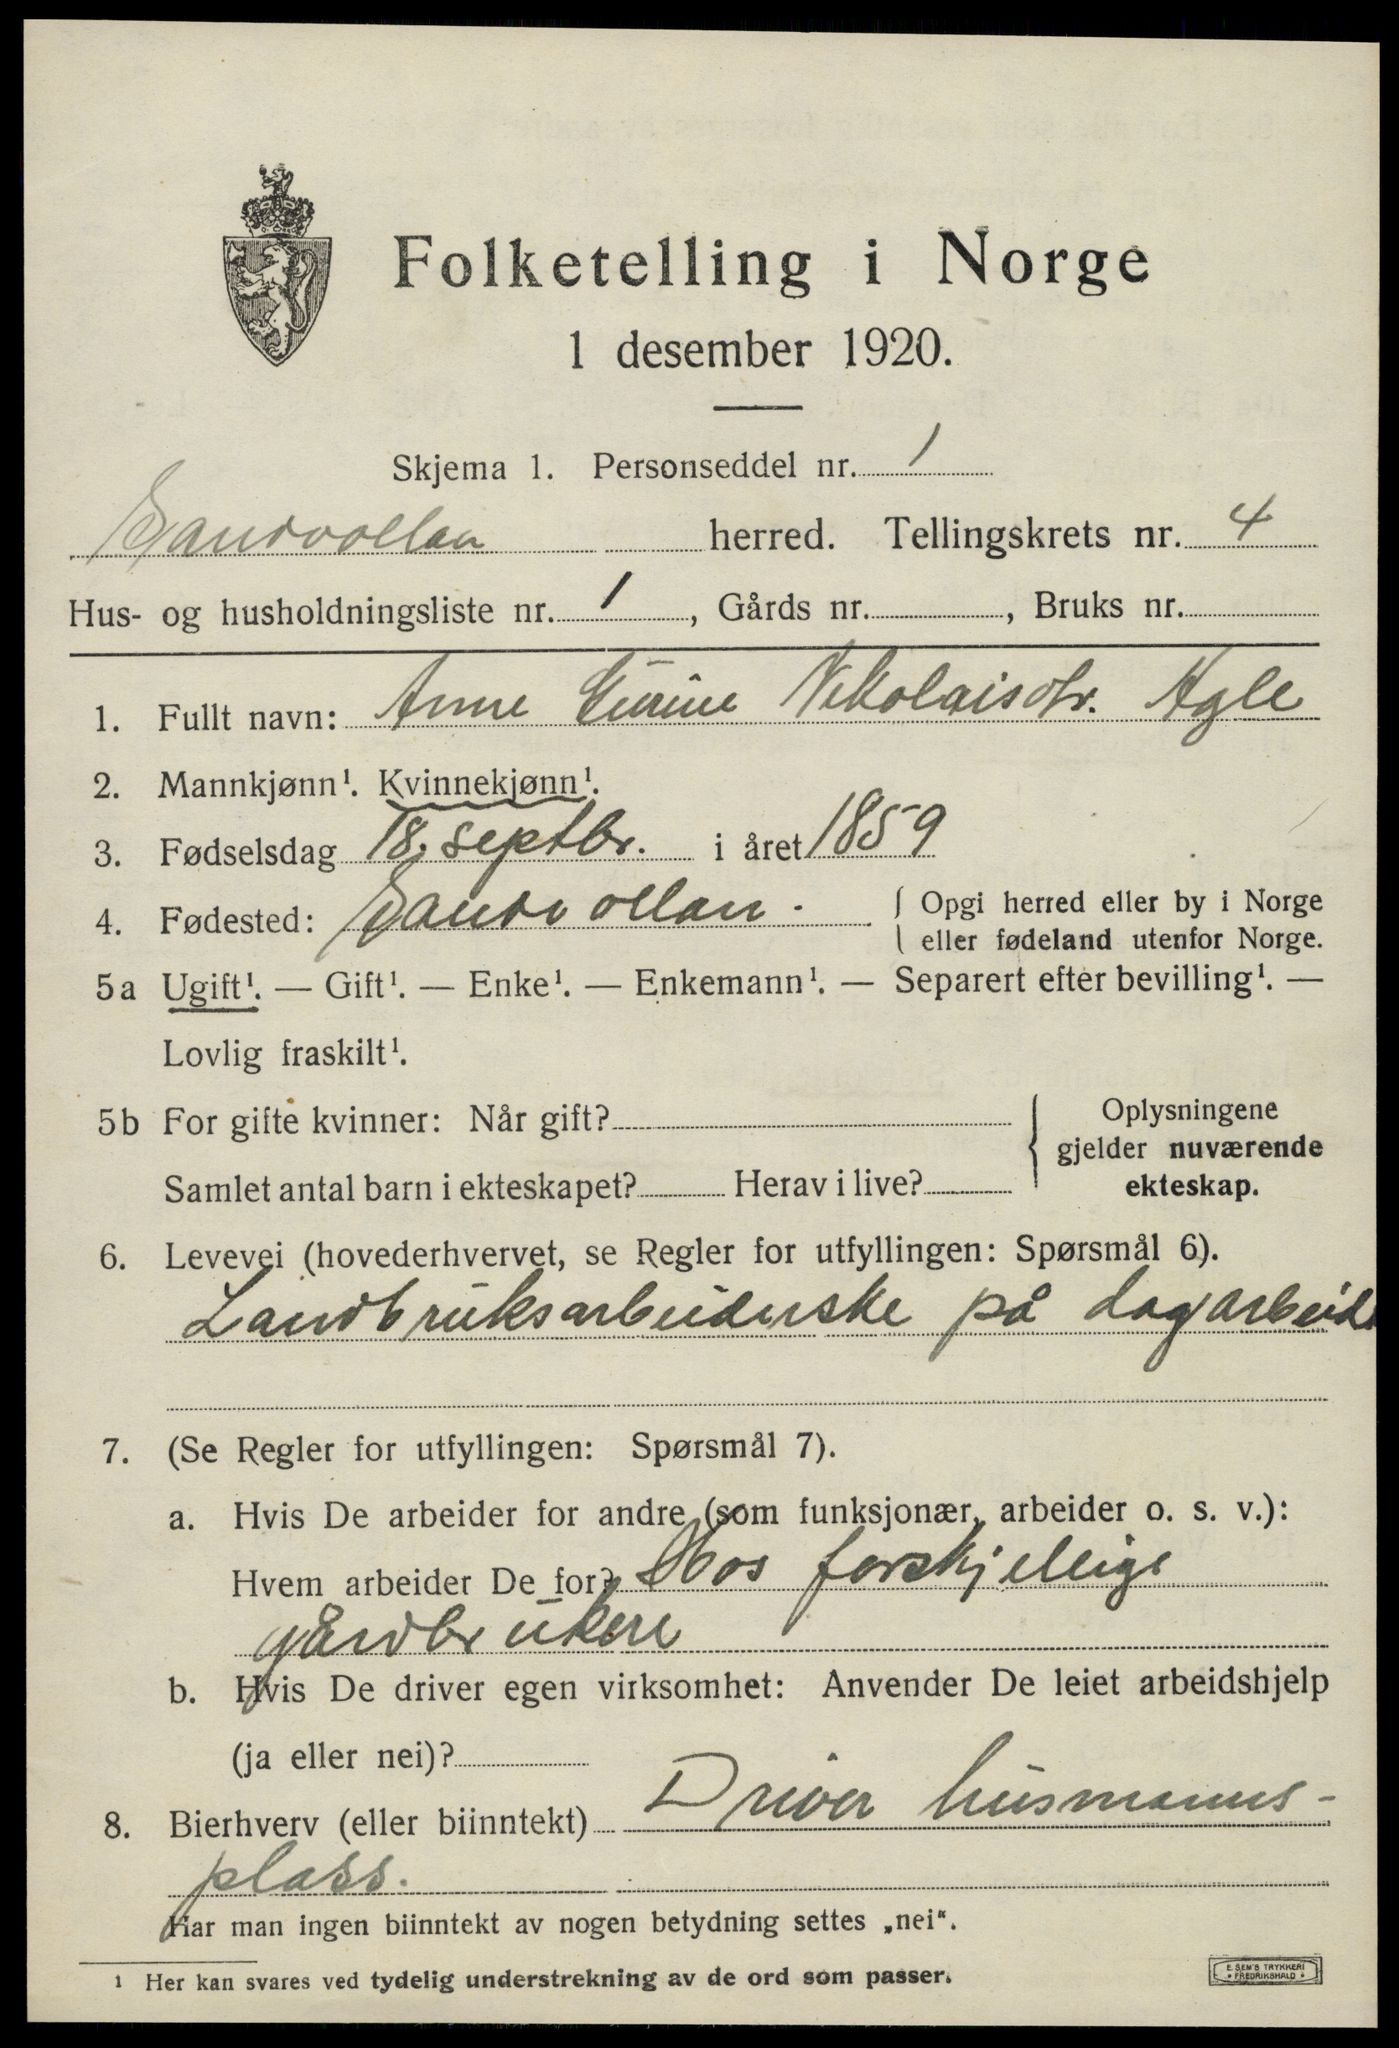 Folketelling i Norge
1 desember 1920.
Skjema 1. Personseddel nr. 1
Sandvollan herred. Tellingskrets nr. 4
Hus- og husholdningsliste nr. 1, Gårds nr. , Bruks nr.
1. Fullt navn: Anne Nikolaisdtr. Agle
2. Mannkjønn¹. Kvinnekjønn¹.
3. Fødselsdag 18. septbr. i året 1859
4. Fødested: Sandvollan. { Opgi herred eller by i Norge
eller fødeland utenfor Norge.
5a Ugift¹. — Gift¹. — Enke¹. — Enkemann¹. — Separert efter bevilling¹. —
Lovlig fraskilt¹.
5b For gifte kvinner: Når gift? { Oplysningene
gjelder nuværende
Samlet antal barn i ekteskapet? Herav i live? ekteskap.
6. Levevei (hovederhvervet, se Regler for utfyllingen: Spørsmål 6).
Landbruksarbeiderske på dagarbeide
7. (Se Regler for utfyllingen: Spørsmål 7).
a. Hvis De arbeider for andre (som funksjonær, arbeider o. s. v.):
Hvem arbeider De for? Hos forskjellige
gårdbrukere
b. Hvis De driver egen virksomhet: Anvender De leiet arbeidshjelp
(ja eller nei)?
8. Bierhverv (eller biinntekt) Driver husmanns-
plass.
Har man ingen biinntekt av nogen betydning settes „nei“.
¹ Her kan svares ved tydelig understrekning av de ord som passer.
E. SEM'S TRYKKERI
FREDRIKSHALD